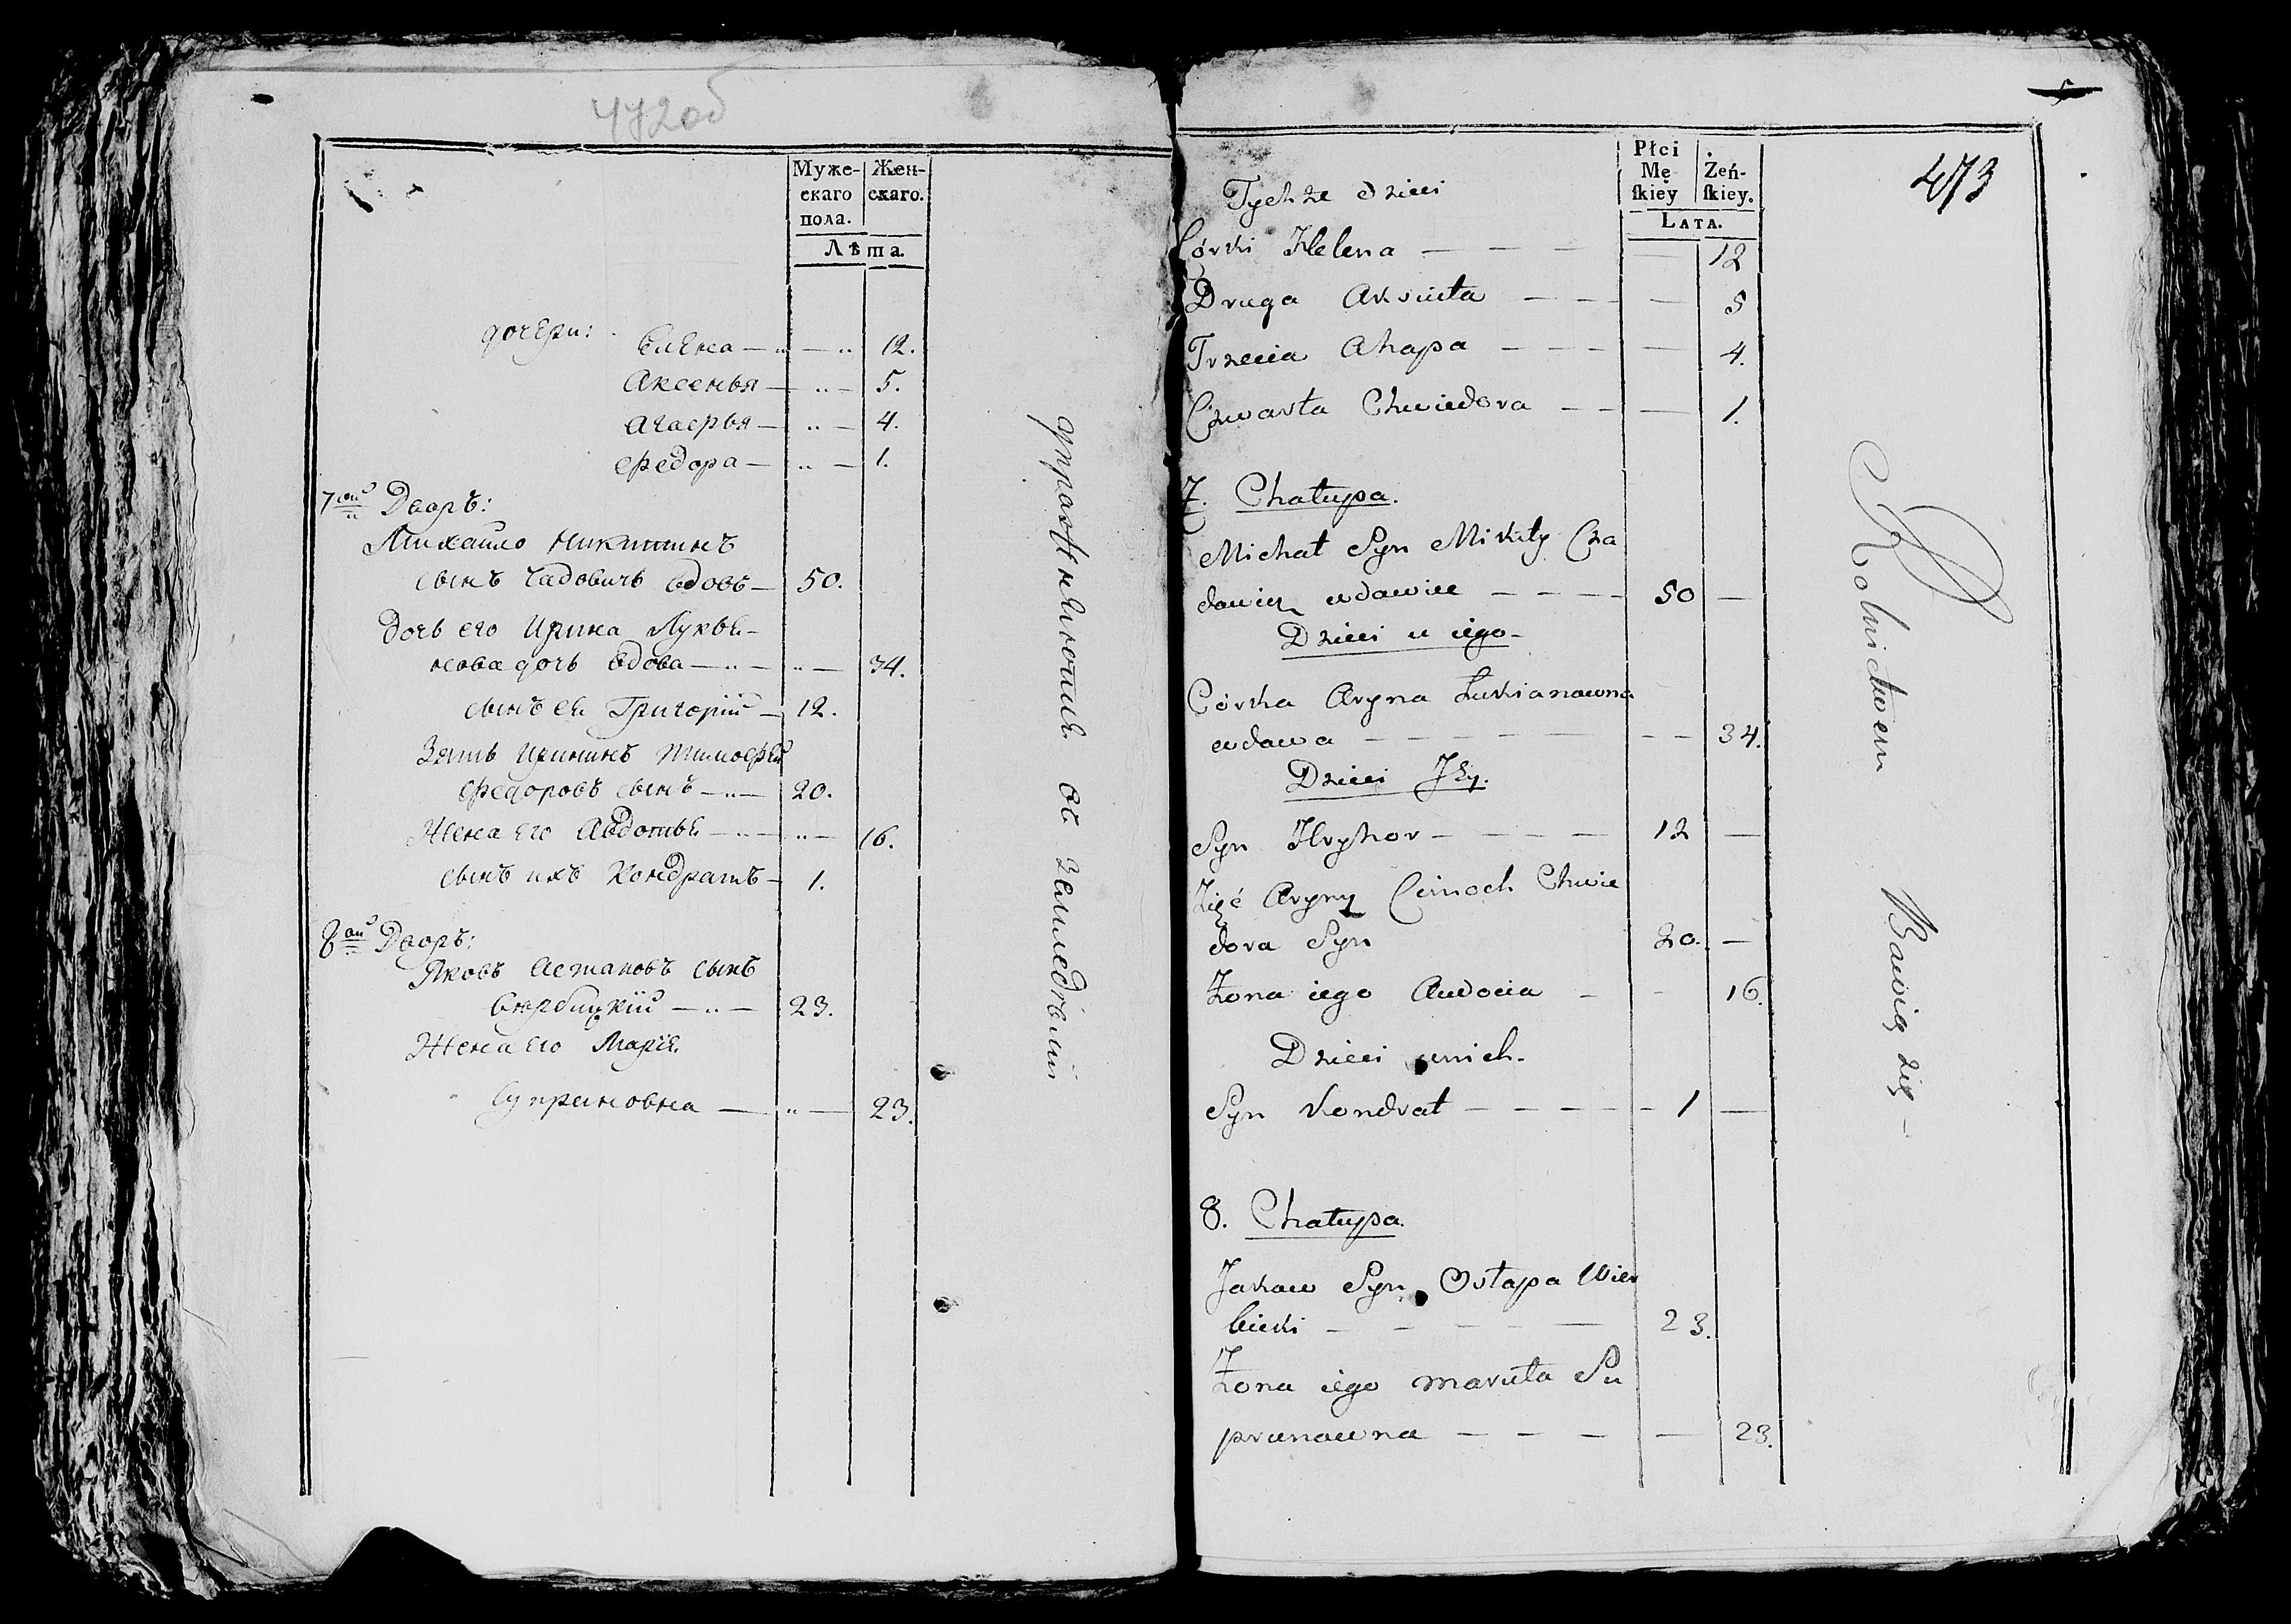 472об
Муже-
скаго
пола.
Жен-
скаго.
Лѣта.
дочери:
Елена — 12.
Аксенья — 5.
Агафья — 4.
Федора — 1.
7ой Дворъ:
Михайло Никитинъ
сынъ Чадовичь вдовъ — 50.
Дочь его Ирина Лукья-
нова дочь вдова — 34.
сынъ ея Григорій — 12.
Зять Ирининъ Тимофей
Федоровъ сынъ — 20.
Жена его Авдотья — 16.
сынъ ихъ Кондратъ — 1.
8ой Дворъ:
Яковъ Астаповъ сынъ
Вербицкій — 23.
Жена его Марія
Супруновна — 23.
упражненіе въ земледѣліи
473
Płci
Mę
skiey
Żeń-
skiey.
Lata.
Tychże dzieci
Córki Helena — — 12
Druga Aksiuta — — 5
Trzecia Ahapa — — 4.
Czwarta Chwiedora — — 1.
7. Chałupa.
Michał Syn Mikity Cza
dowicz wdowiec — 50 —
Dzieci u iego
Córka Aryna Łukianowna
wdowa — — 34.
Dzieci Jey.
Syn Hryhor — 12 —
Zięć Aryny Cimoch Chwie
dora Syn 20. —
Żona iego Audocia — 16.
Dzieci unich.
Syn Kondrat — 1 —
8. Chałupa.
Jakow Syn Ostapa Wier
bicki — 23.
Żona iego Maruta Su
prunowna — — 23.
Rolnictwem Bawią się —